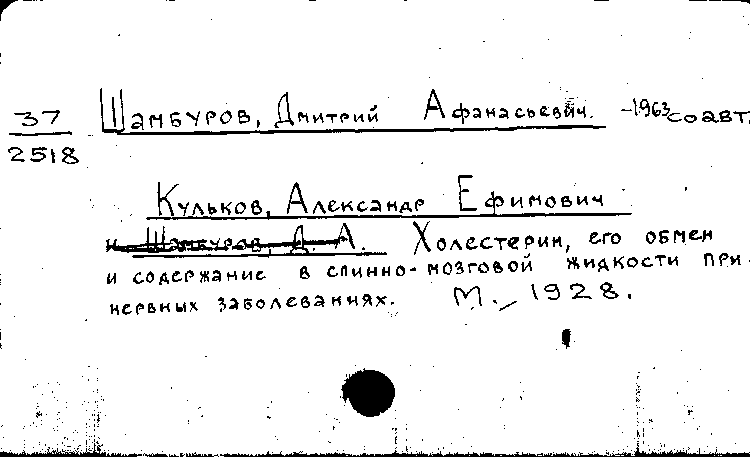 37
2518
Шамбуров, Дмитрий Афанасьевич. -1963 соавт.
Кульков, Александр Ефимович
и Шамбуров, Д. А. Холестерин, его обмен
и содержание в спинно-мозговой жидкости при
нервных заболеваниях. М., 1928.